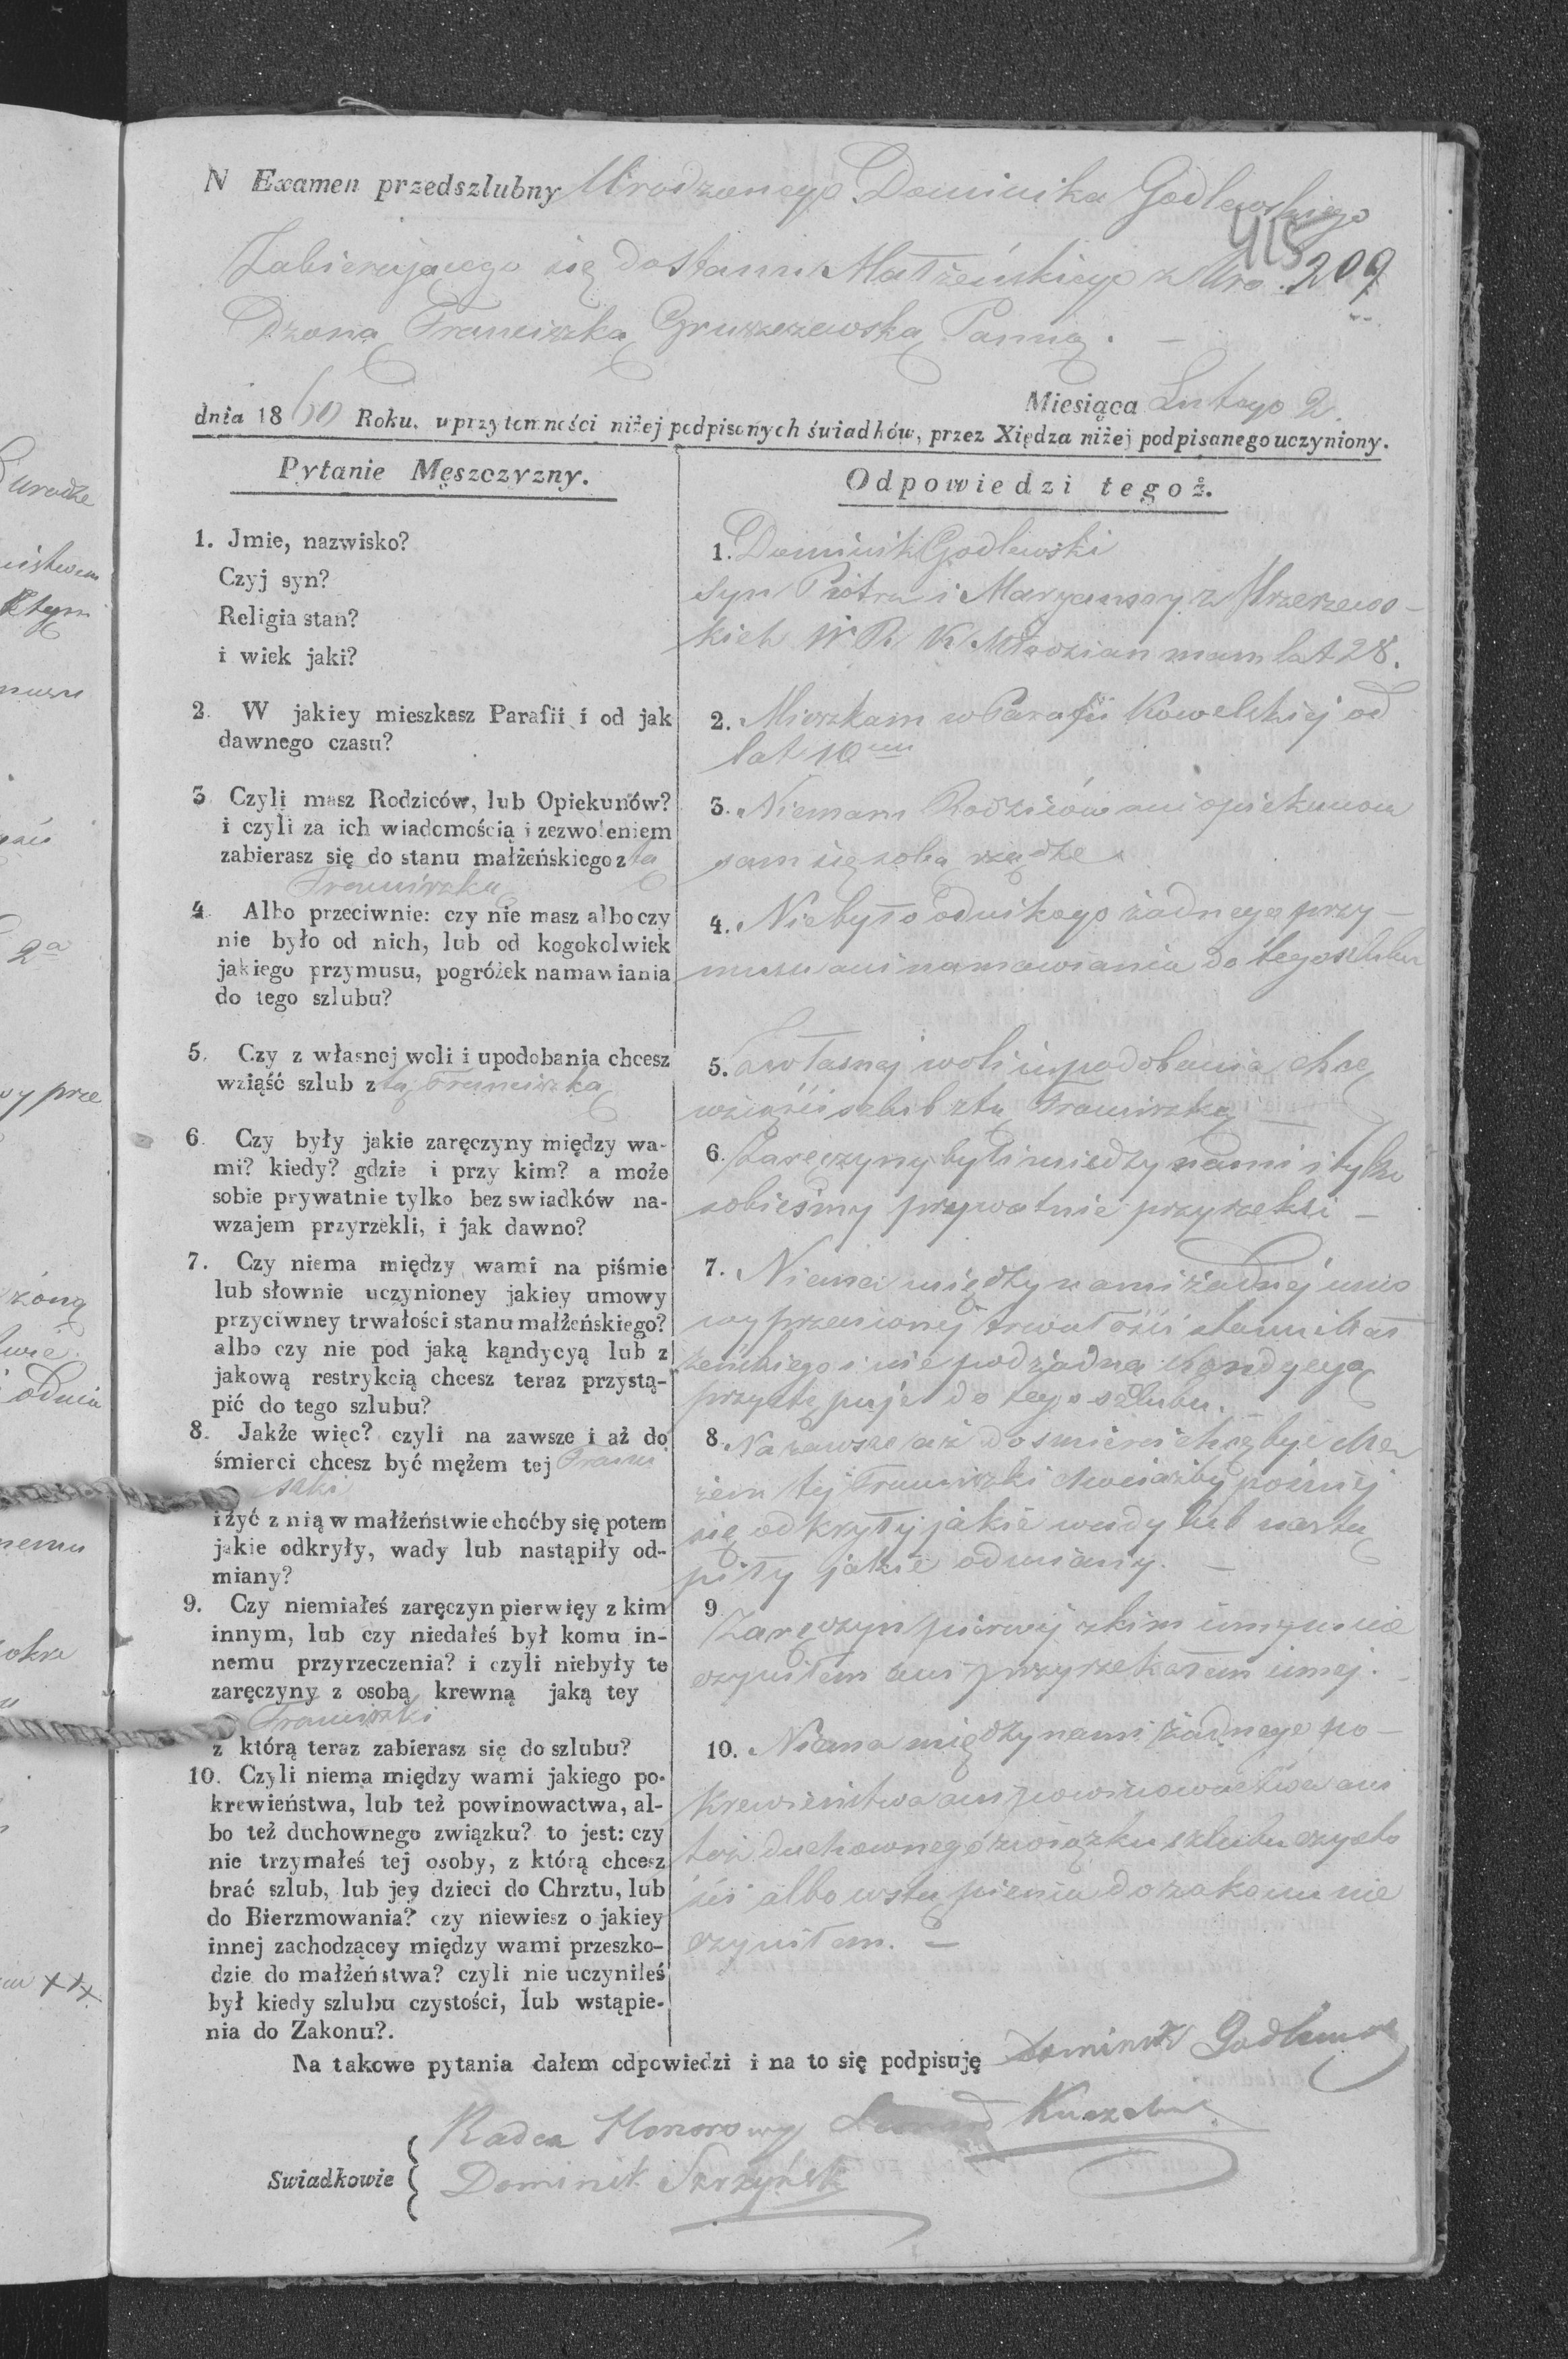 N Examen przedszlubny Urodzonego Dominika Godlewskiego
415
Zabierającego się do stanu Małżeńskiego z Uro. 209
Dzoną Franciszką Gruszczewską Panną. —
Miesiąca Lutego 2
dnia 1860 Roku, w przytomności niżej podpisanych świadków, przez Xiędza niżej podpisanego uczyniony.
Pytanie Męszczyzny.
1. Jmie, nazwisko?
Czyj syn?
Religia stan?
i wiek jaki?
2. W jakiey mieszkasz Parafii i od jak
dawnego czasu?
3 Czyli masz Rodziców, lub Opiekunów?
i czyli za ich wiadomością i zezwoleniem
zabierasz się do stanu małżeńskiego z tą
Franciszką
4 Albo przeciwnie: czy nie masz albo czy
nie było od nich, lub od kogokolwiek
jakiego przymusu, pogróżek namawiania
do tego szlubu?
5. Czy z własnej woli i upodobania chcesz
wziąść szlub z tą Franciszką
6. Czy były jakie zaręczyny między wa-
mi? kiedy? gdzie i przy kim? a może
sobie prywatnie tylko bez swiadków na-
wzajem przyrzekli, i jak dawno?
7. Czy niema między wami na piśmie
lub słownie uczynioney jakiey umowy
przyciwney trwałości stanu małżeńskiego?
albo czy nie pod jaką kąndycyą lub z
jakową restrykcią chcesz teraz przystą-
pić do tego szlubu?
8. Jakże więc? czyli na zawsze i aż do
śmierci chcesz być mężem tej Franci
szki
i żyć z nią w małżeństwie choćby się potem
jakie odkryły, wady lub nastąpiły od-
miany?
9. Czy niemiałeś zaręczyn pierwięy z kim
innym, lub czy niedałeś był komu in-
nemu przyrzeczenia? i czyli niebyły te
zaręczyny z osobą krewną jaką tey
Franciszki
z którą teraz zabierasz się do szlubu?
10. Czyli niema między wami jakiego po-
krewieństwa, lub też powinowactwa, al-
bo też duchownego związku? to jest: czy
nie trzymałeś tej osoby, z którą chcesz
brać szlub, lub jey dzieci do Chrztu, lub
do Bierzmowania? czy niewiesz o jakiey
innej zachodzącey między wami przeszko-
dzie do małżeństwa? czyli nie uczyniłeś
był kiedy szlubu czystości, lub wstąpie-
nia do Zakonu?.
Odpowiedzi tegoż.
1. Dominik Godlewski
Syn Piotra i Maryanny z
kich W R K Młodzian mam lat 28.
2. Mieszkam w Parafii Kowelskiej od
lat 10
3. Niemam Rodziców ani opiekunow
sam się sobą rządzę
4. Niebyło od nikogo żadnego przy-
musu ani namawiania do tego szlubu
5. Z własnej woli i upodobania chcę
wziąści szlub z tą Franciszką —
6. Zaręczyny byli miedzy nami i tylko
sobieśmy prywatnie przyrzekli —
7. Niema między nami żadnej umo
wy przeciwnej trwałości stanu Mał
żeńskiego i nie pod żadną Kondycyą
przystępuję do tego szlubu.
8. Na zawsze i aż do smierci chcę być Mę
żem tej Franciszki chociażby poźniej
się odkryły jakie wady lub nastą
piły jakie odmiany. —
9 Zaręczyn pierwiej z kim innym nie
czyniłem ani przyrzekałem innej. —
10. Niema między nami żadnego po-
krewieństwa ani powinowactwa ani
też duchownego związku szlubu czysto
ści albo wstąpienia do zakonu nie
czyniłem. —
Na takowe pytania dałem odpowiedzi i na to się podpisuję Dominik Godlewski
Radca Honorowy
Swiadkowie { Dominik